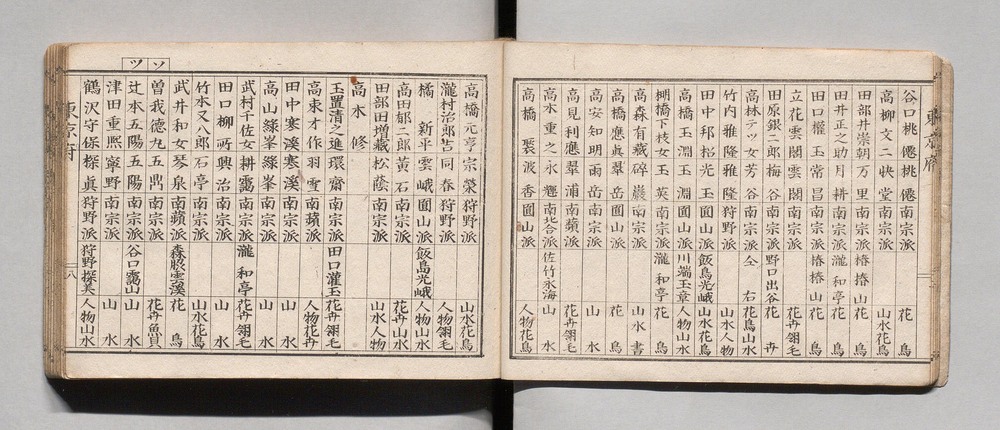 東京府
谷口桃僊 桃僊 南宗派 花鳥
高柳文二 快堂 南宗派 山水花鳥
田部井崇朝 万里 南宗派 椿椿山 花鳥
田井正之助 月耕 南宗派 瀧和亭 花鳥
田口權 玉常 昌南宗派 椿椿山 花鳥
立花雲閣 雲閣 南宗派 花卉翎毛
田原銀二郎 梅谷 南宗派 野口出谷 花卉
高林テツ女 芳谷 南宗派 仝右 花鳥山水
竹内雅隆 雅隆 狩野派 山水人物
田中邦招 光玉 圓山派 飯島光峨 山水花鳥
高橋玉淵 玉淵 圓山派 川端玉章 人物山水
棚橋下枝女 玉英 南宗派 瀧和亭 花鳥
高森有藏 碎巖 南宗派 山水書
高橋應眞 翠岳 圓山派 花鳥
高安知明 雨岳 南宗派 山水
高見利應 翠浦 南蘋派 花卉翎毛
高木重之 永 南北合派 佐竹永海 山水
高橋 裂波 香 圓山派 人物花鳥
高橋元亨 宗榮 狩野派 山水花鳥
瀧村治郎吉 同春 狩野派 人物翎毛
橘新平 雲峨 圓山派 飯島光峨 人物山水
高田郁二郎 黄石 南宗派 花卉山水
田部田増藏 松蔭 南宗派 山水人物
高木修
玉置清之進 環齋 南宗派 田口灌玉 花卉翎毛
高束才作 羽雪 南蘋派 人物花卉
田中寒溪 寒溪 南宗派 山水
高山綠峯 綠峯 南宗派 山水
武村千佐女 耕靄 南宗派 瀧和亭 花卉翎毛
田口柳所 興治 南宗派 山水
竹本又八郎 石亭 南宗派 山水花鳥
ソ
武井和女 琴泉 南蘋派 森脇雲溪 花鳥
曽我徳九 五鼎 南宗派 花卉魚貝
ツ
辻本五陽 五陽 南宗派 谷口靄山 山水
津田重熙 寧野 南宗派 山水
鶴沢守保 探眞 狩野派 狩野探美 人物山水
東京府
八